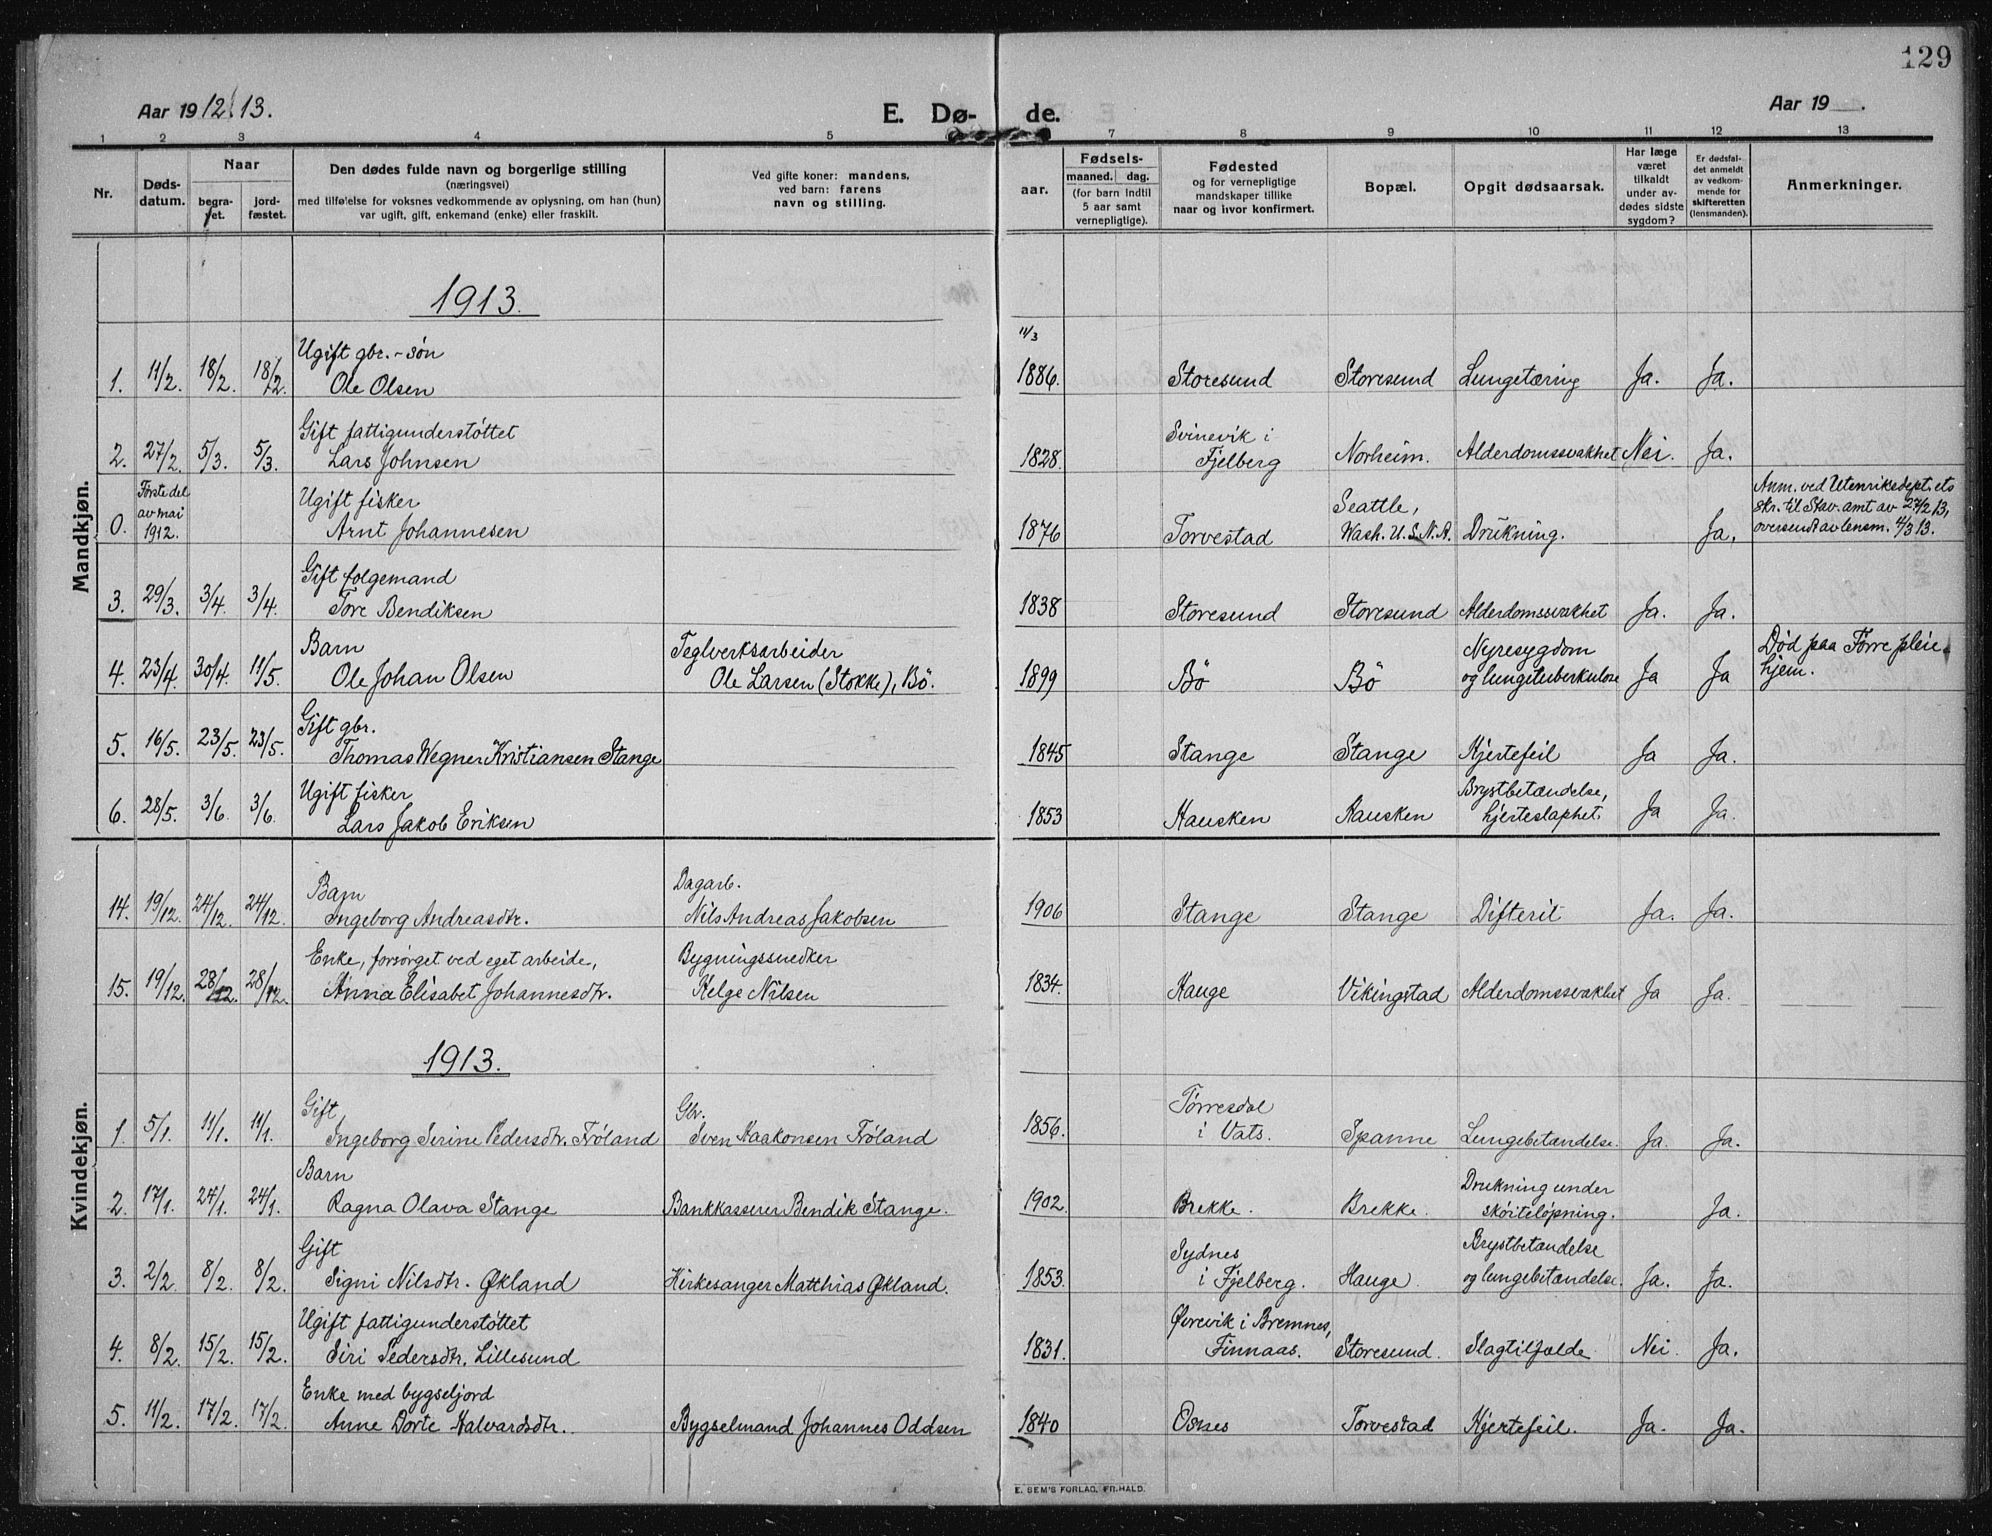 129
Aar 1912/13.
E. Dø-
de.
Aar 19 .
1 2 3 4 5 7 8 9 10 11 12 13
Nr.
Døds-
datum.
Naar
begra-
vet.
jord-
fæstet.
Den dødes fulde navn og borgerlige stilling
(næringsvei)
med tilføielse for voksnes vedkommende av oplysning, om han (hun)
var ugift, gift, enkemand (enke) eller fraskilt.
Ved gifte koner: mandens,
ved barn: farens
navn og stilling.
aar.
Fødsels-
maaned. dag.
(for barn indtil
5 aar samt
vernepligtige).
Fødested
og for vernepligtige
mandskaper tillike
naar og hvor konfirmert.
Bopæl.
Opgit dødsaarsak.
Har læge
været
tilkaldt
under av-
dødes sidste
sygdom?
Er dødsfal-
det anmeldt
av vedkom-
mende for
skifteretten
(lensmanden).
Anmerkninger.
Mandkjøn.
1913.
11/3
Ugift gbr.-søn
1. 11/2. 18/2. 18/2. Ole Olsen 1886. Storesund Storesund Lungetæring Ja. Ja.
Gift fattigunderstøttet
2. 27/2. 5/3. 5/3. Lars Johnsen 1828. Svinevik i
Fjelberg Norheim. Alderdomssvakhet Nei. Ja.
0. Første del
av mai
1912.
Ugift fisker
Arnt Johannesen 1876 Torvestad Seattle,
Wash. U.S.N.A. Drukning. Ja. Anm. ved Utenriksdept.ets
skr. til Stav. amt av 27/2 13,
oversendt av lensm. 4/3 13.
Gift folgemand
3. 29/3. 3/4. 3/4. Tore Bendiksen 1838 Storesund Storesund Alderdomssvakhet Ja. Ja.
Barn
4. 23/4. 30/4. 11/5. Ole Johan Olsen Teglverksarbeider
Ole Larsen (Stokke), Bö. 1899 Bö Bö Nyresygdom
og lungetuberkulose Ja Ja Død paa Førre pleie-
hjem.
Gift gbr.
5. 16/5. 23/5. 23/5. Thomas Wegner Kristiansen Stange 1845 Stange Stange Hjertefeil Ja Ja.
Ugift fisker
6. 28/5. 3/6. 3/6. Lars Jakob Eriksen 1853 Hausken Hausken Brystbetændelse,
hjerteslaphet. Ja Ja.
Kvindekjøn.
Barn
14. 19/12. 24/12. 24/12. Ingeborg Andreasdtr. Dagarb.
Nils Andreas Jakobsen 1906 Stange Stange Difterit Ja. Ja.
Enke, forsørget ved eget arbeide,
15. 19/12. 28/12. 28/12. Anna Elisabet Johannesdtr. Bygningssnedker
Helge Nilsen 1834. Hauge Vikingstad Alderdomssvakhet Ja Ja.
1913.
Gift
1. 5/1. 11/1. 11/1. Ingeborg Serine Pedersdtr. Frøland Gbr.
Sven Haakonsen Frøland 1856. Tørresdal
i Vats. Spanne Lungebetændelse. Ja. Ja.
Barn
2. 17/1. 24/1. 24/1. Ragna Olava Stange Bankkasserer Bendik Stange. 1902. Brekke. Brekke. Drukning under
skøiteløpning. Ja.
Gift
3. 2/2. 8/2. 8/2. Signi Nilsdtr. Økland Kirkesanger Matthias Økland. 1853. Sydnes
i Fjelberg. Hauge. Brystbetændelse
og lungebetændelse. Ja. Ja.
Ugift fattigunderstøttet
4. 8/2. 15/2. 15/2. Siri Pedersdtr. Lillesund 1831. Øvrevik i Bremnes,
Finnaas. Storesund. Slagtilfælde. Nei. Ja.
Enke med bygseljord
5. 11/2. 17/2. 17/2. Anne Dorte Halvardsdtr. Bygselmand Johannes Oddsen 1840 Osnes Torvestad Hjertefeil. Ja. Ja.
E. SEM'S FORLAG, FR.HALD.